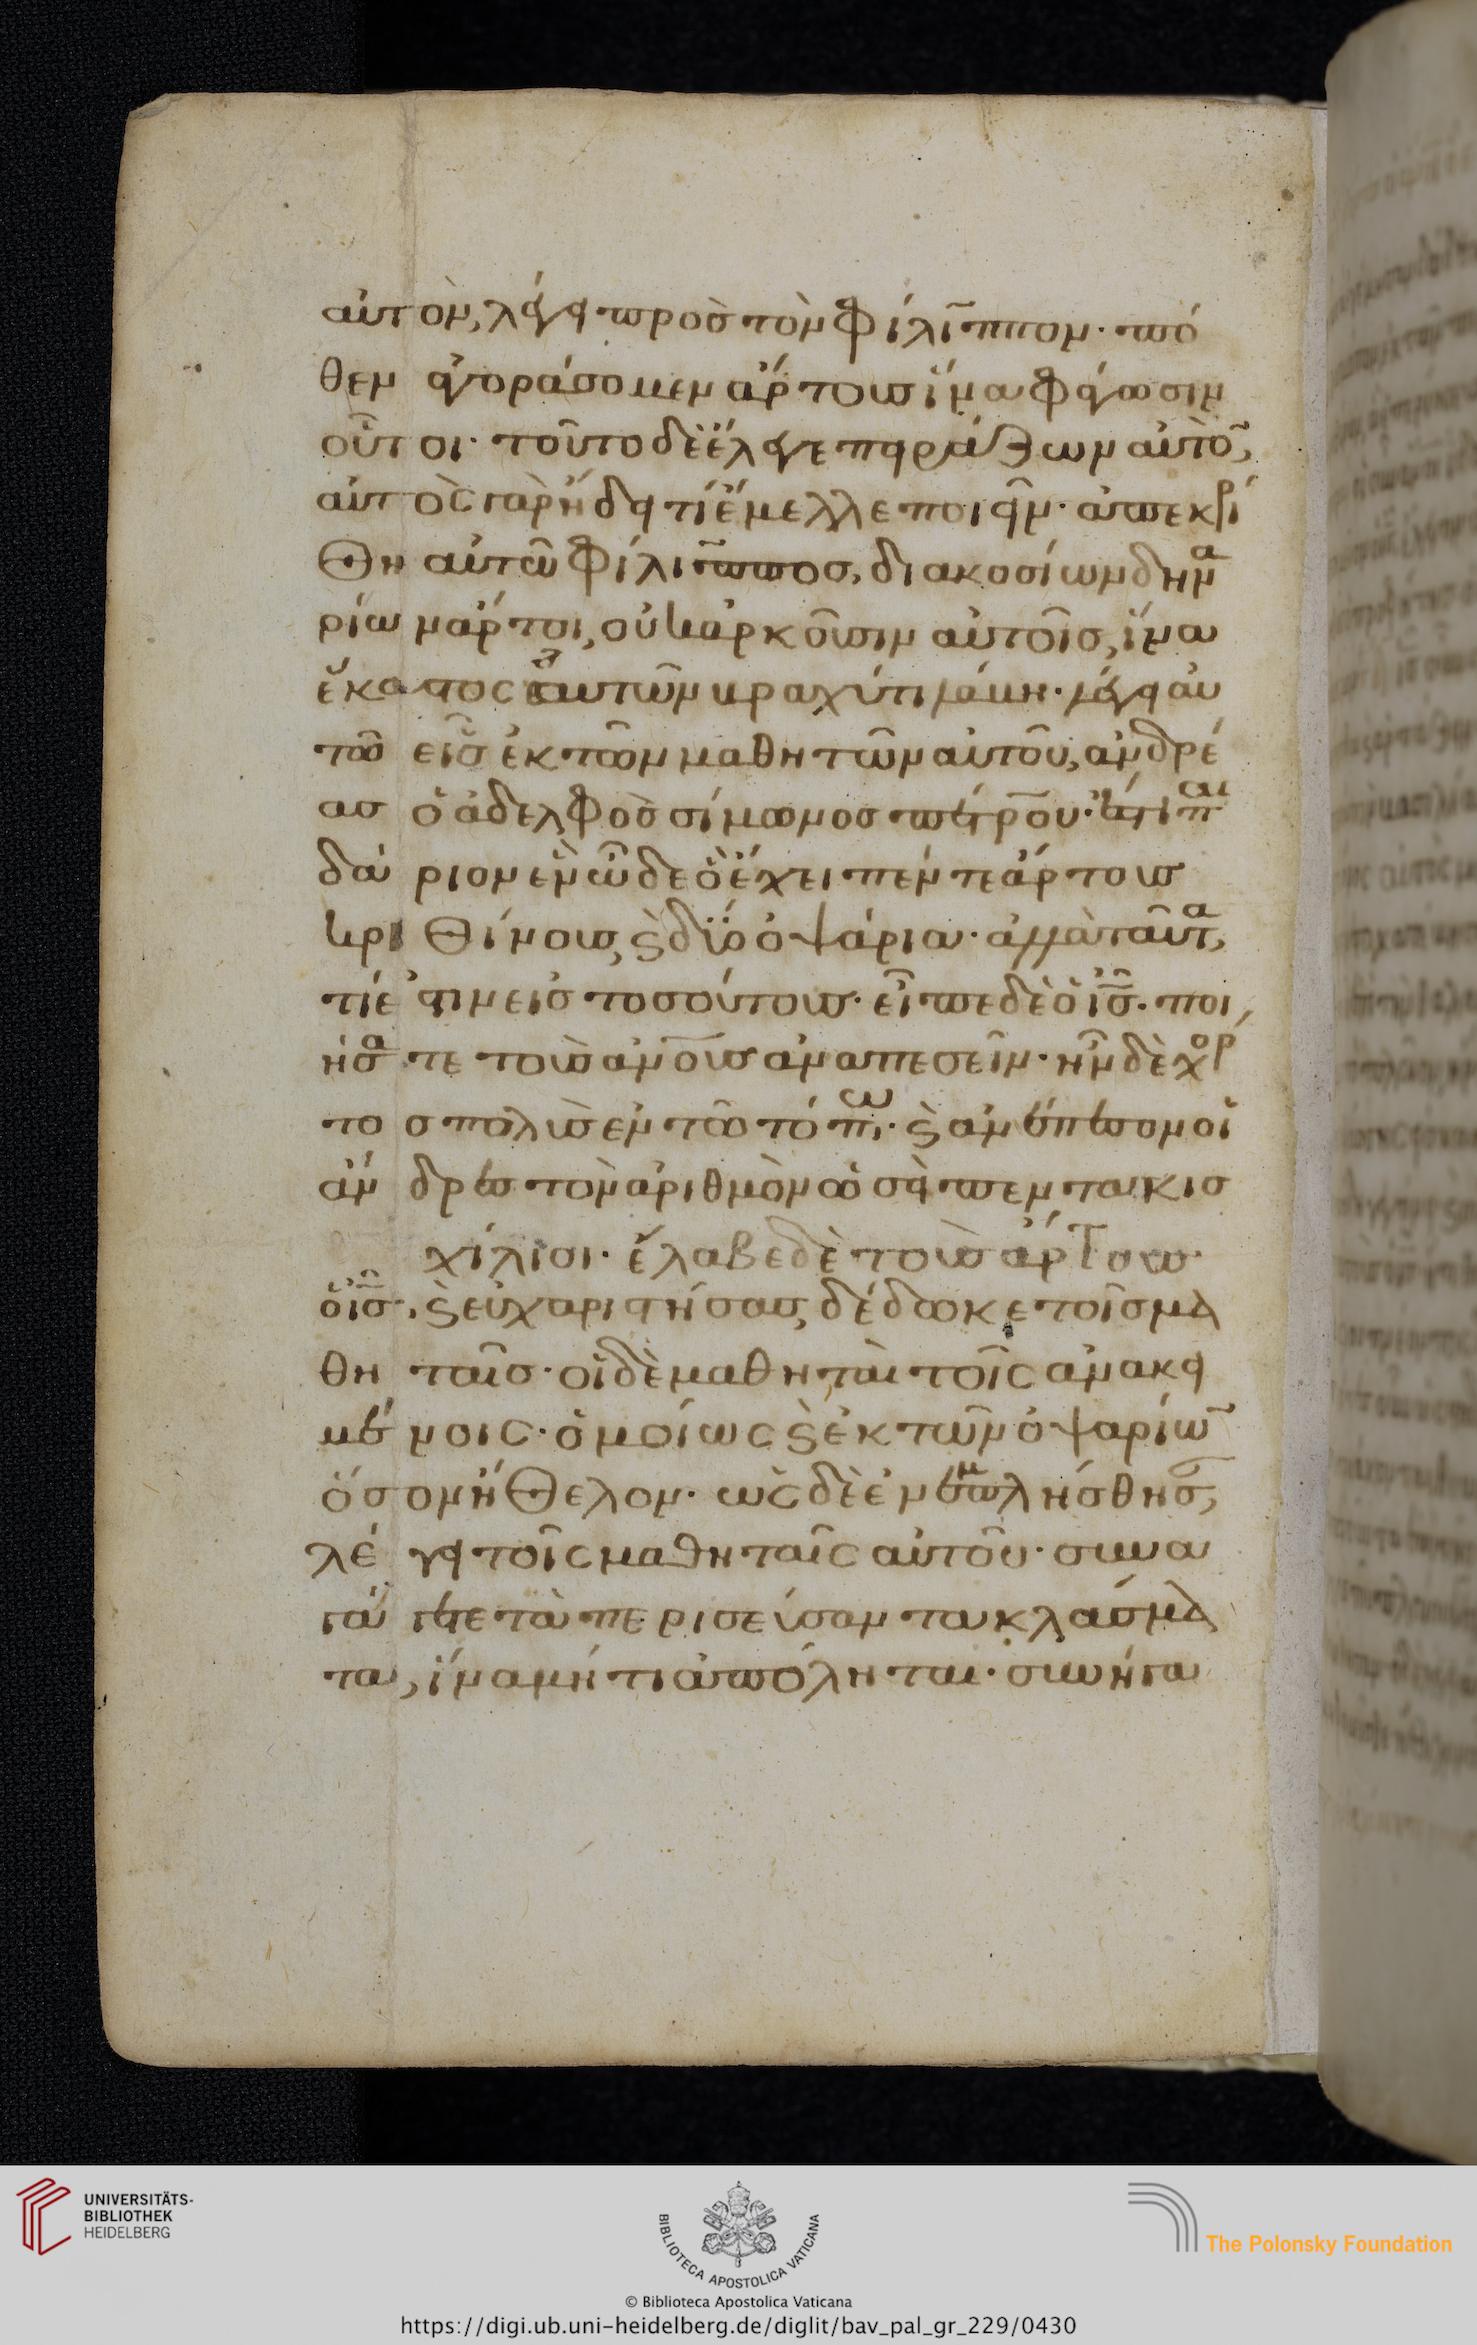 αὐτὸν, λέγει πρὸς τὸν φίλιππον· πό
θεν ἀγοράσομεν ἄρτους ἵνα φάγωσιν
οὗτοι· τοῦτο δὲ ἔλεγε πειράζων αὐτὸ̅,
αὐτὸς γὰρ ἤδει τί ἔμελλε ποιεῖν· ἀπεκρί
θη αὐτῶ φίλιππος, διακοσίων δηνα
ρίων ἄρτοι, οὐκ ἀρκοῦσιν αὐτοῖς, ἵνα
ἕκαστος αὐτῶν βραχύ τι λάβη· λέγει αὐ
τῶ εἷς ἐκ τῶν μαθητῶν αὐτοῦ, ἀνδρέ
ας ὁ ἀδελφὸς σίμωνος πέτρου· ἔστι παι
δάριον ἓν ὧδε ὃ ἔχει πέντε ἄρτους
κριθίνους, ϗ δύο ὀψάρια· ἀλλὰ ταῦτα,
τί ἐστιν εἰς τοσούτους· εἶπε δὲ ὁ ἰ̅ς̅· ποι
ήσατε τοὺς ἀνους ἀναπεσεῖν· ἦν δὲ χόρ
τος πολὺς ἐν τῶ τόπω· ϗ ἀνέπεσον οἱ
ἄνδρες τὸν ἀριθμὸν ὡσεὶ πεντακισ
χίλιοι· ἔλαβε δὲ τοὺς ἄρτους
ὁ ἰ̅ς̅, ϗ εὐχαριστήσας, δέδωκε τοῖς μα
θηταῖς· οἱ δὲ μαθηταὶ τοῖς ἀνακει
μένοις· ὁμοίως ϗ ἐκ τῶν ὀψαρίω̅
ὅσον ἤθελον· ὡς δὲ ἐνεπλήσθησ,
λέγει τοῖς μαθηταῖς αὐτοῦ· συνα
γάγετε τὰ περισεύσαντα κλάσμα
τα, ἵνα μή τι ἀπόληται· συνήγα
UNIVERSITÄTS-
BIBLIOTHEK
HEIDELBERG
BIBLIOTECA APOSTOLICA VATICANA
The Polonsky Foundation
© Biblioteca Apostolica Vaticana
https://digi.ub.uni-heidelberg.de/diglit/bav_pal_gr_229/0430